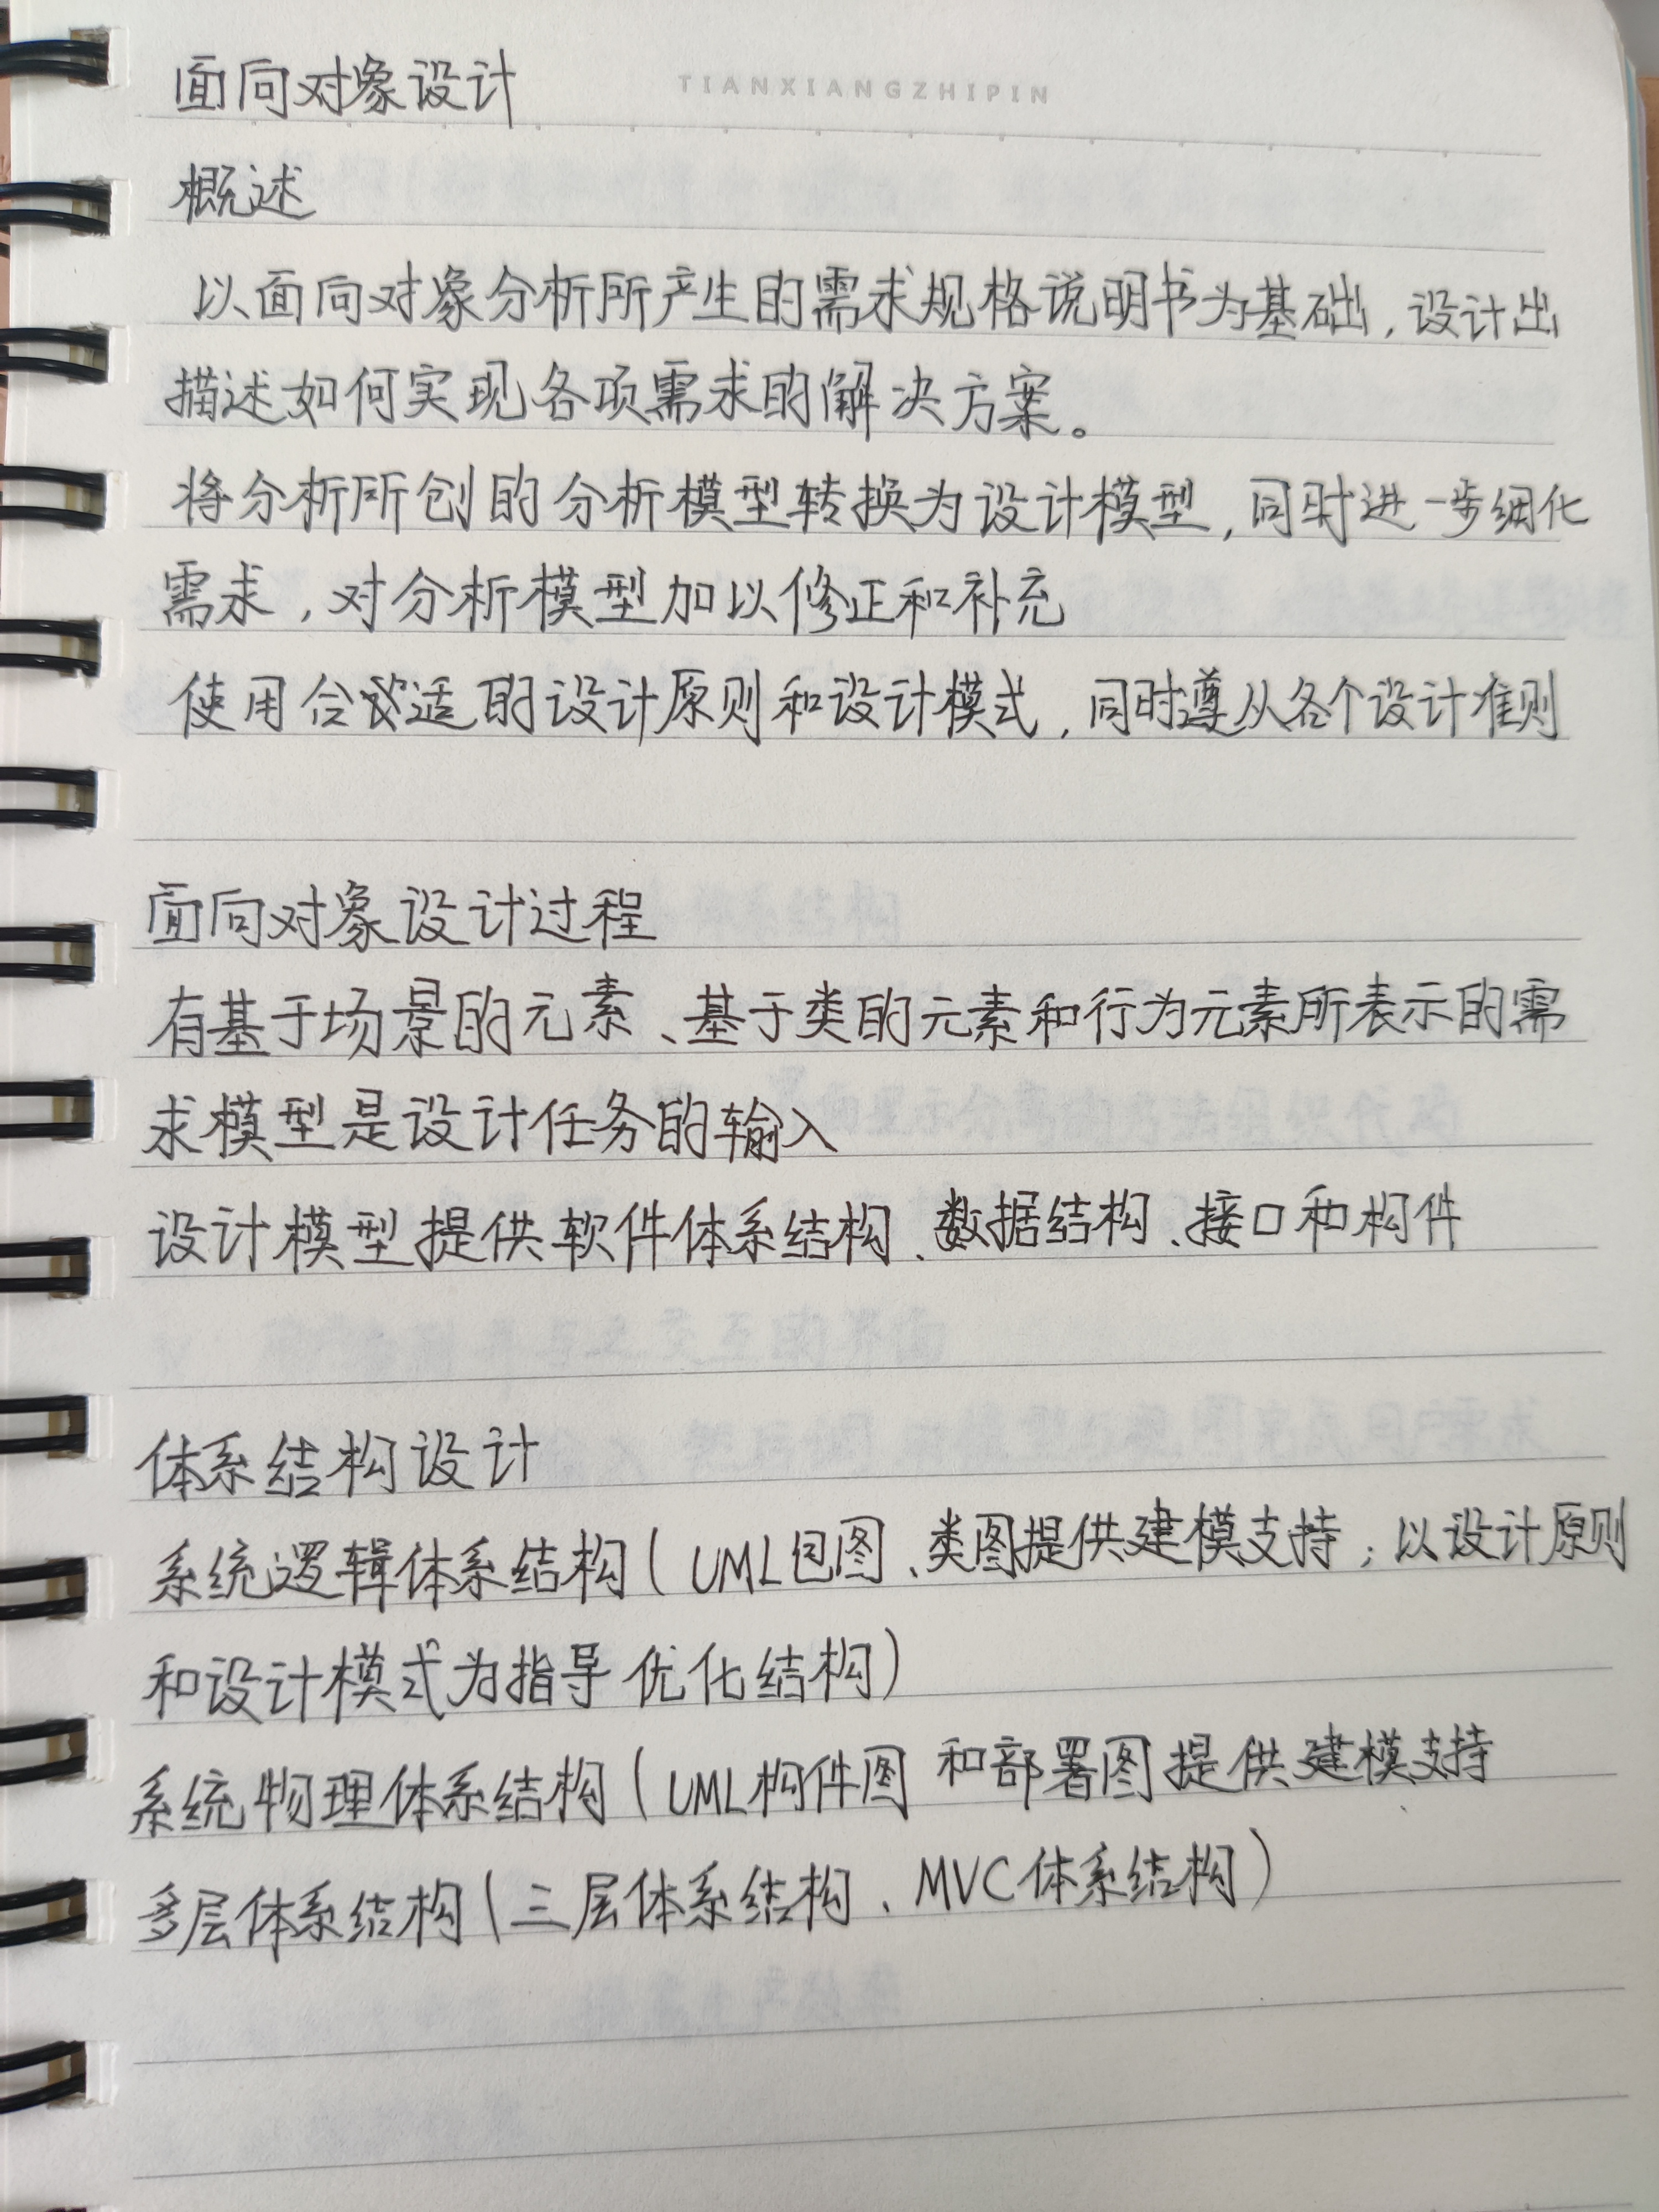 TIANXIANGZHIPIN
面向对象设计
概述
以面向对象分析所产生的需求规格说明书为基础，设计出
描述如何实现各项需求的解决方案。
将分析所创的分析模型转换为设计模型，同时进一步细化
需求，对分析模型加以修正和补充
使用合适的设计原则和设计模式，同时遵从各个设计准则
面向对象设计过程
有基于场景的元素、基于类的元素和行为元素所表示的需
求模型是设计任务的输入
设计模型提供软件体系结构、数据结构、接口和构件
体系结构设计
系统逻辑体系结构(UML包图、类图提供建模支持；以设计原则
和设计模式为指导优化结构)
系统物理体系结构(UML构件图和部署图提供建模支持
多层体系结构(三层体系结构、MVC体系结构)